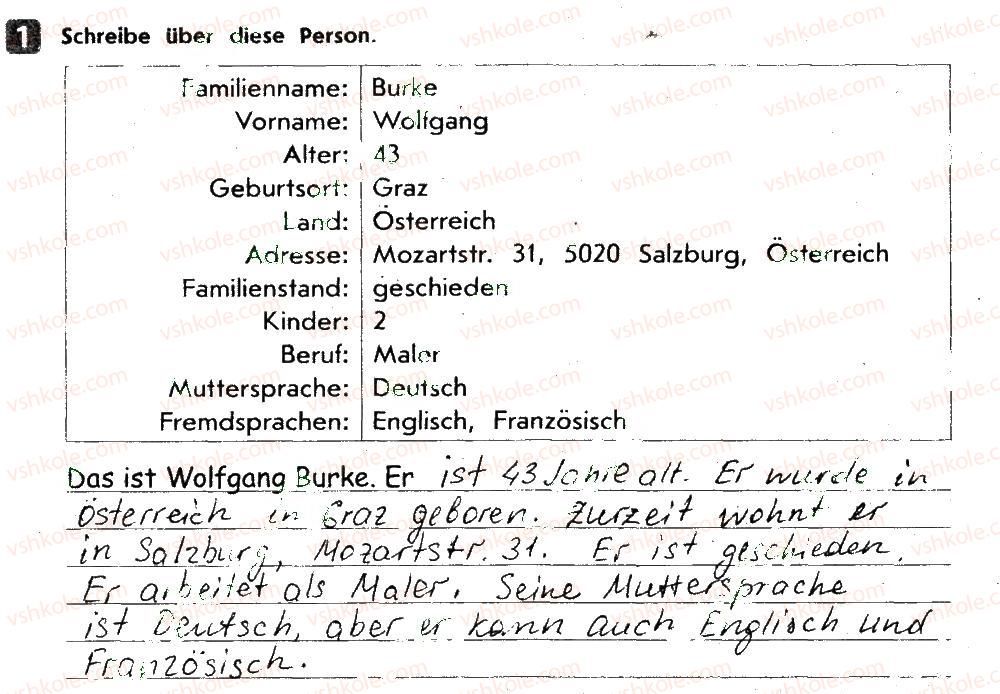 1 Schreibe über diese Person.
Familienname: Burke
Vorname: Wolfgang
Alter: 43
Geburtsort: Graz
Land: Österreich
Adresse: Mozartstr. 31, 5020 Salzburg, Österreich
Familienstand: geschieden
Kinder: 2
Beruf: Maler
Muttersprache: Deutsch
Fremdsprachen: Englisch, Französisch
Das ist Wolfgang Burke. Er ist 43 Jahre alt. Er wurde in
Österreich in Graz geboren. Zurzeit wohnt er
in Salzburg, Mozartstr. 31. Er ist geschieden.
Er arbeitet als Maler. Seine Muttersprache
ist Deutsch, aber er kann auch Englisch und
Französisch.
vshkole.com